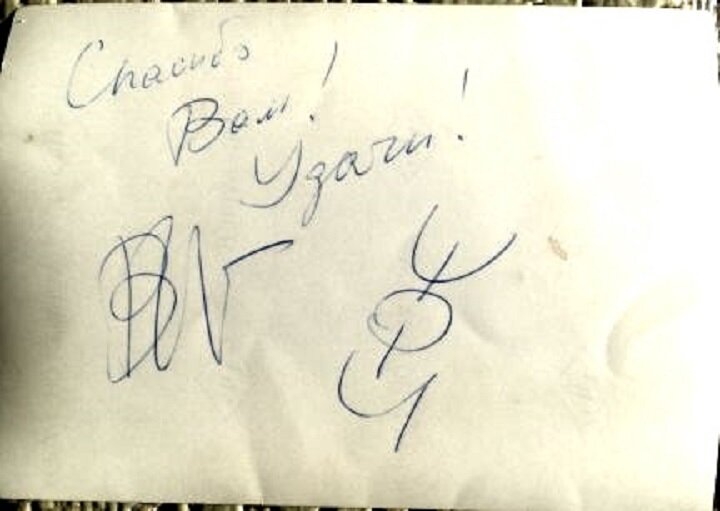 Спасибо
Вам!
Удачи!